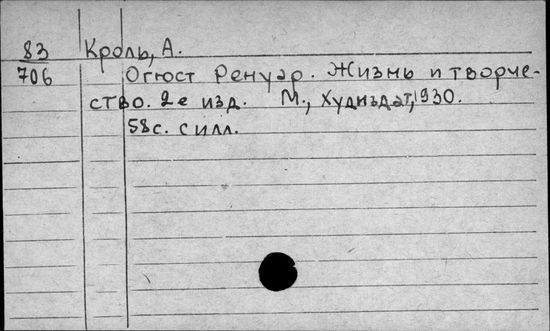 83 Кроль, А.
706 Огюст Ренуар. Жизнь и творче-
ство. 2е изд. М., Худиздат, 1930.
58 с. с илл.